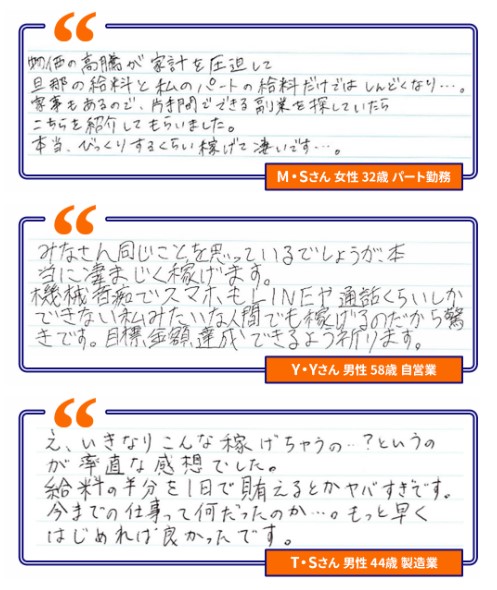 物価の高騰が家計を圧迫して
旦那の給料と私のパートの給料だけではしんどくなり…。
家事もあるので、片手間でできる副業を探していたら
こちらを紹介してもらいました。
本当、びっくりするくらい稼げて凄いです…。
M・Sさん 女性 32歳 パート勤務
みなさん同じことを思っているでしょうが、本
当に凄まじく稼げます。
機械音痴でスマホもLINEや通話くらいしか
できない私みたいな人間でも稼げるのだから驚
きです。目標金額達成できるよう祈ります。
Y・Yさん 男性 58歳 自営業
え、いきなりこんな稼げちゃうの…?というの
が率直な感想でした。
給料の半分を1日で賄えるとかヤバすぎです。
今までの仕事って何だったのか…。もっと早く
はじめれば良かったです。
T・Sさん 男性 44歳 製造業